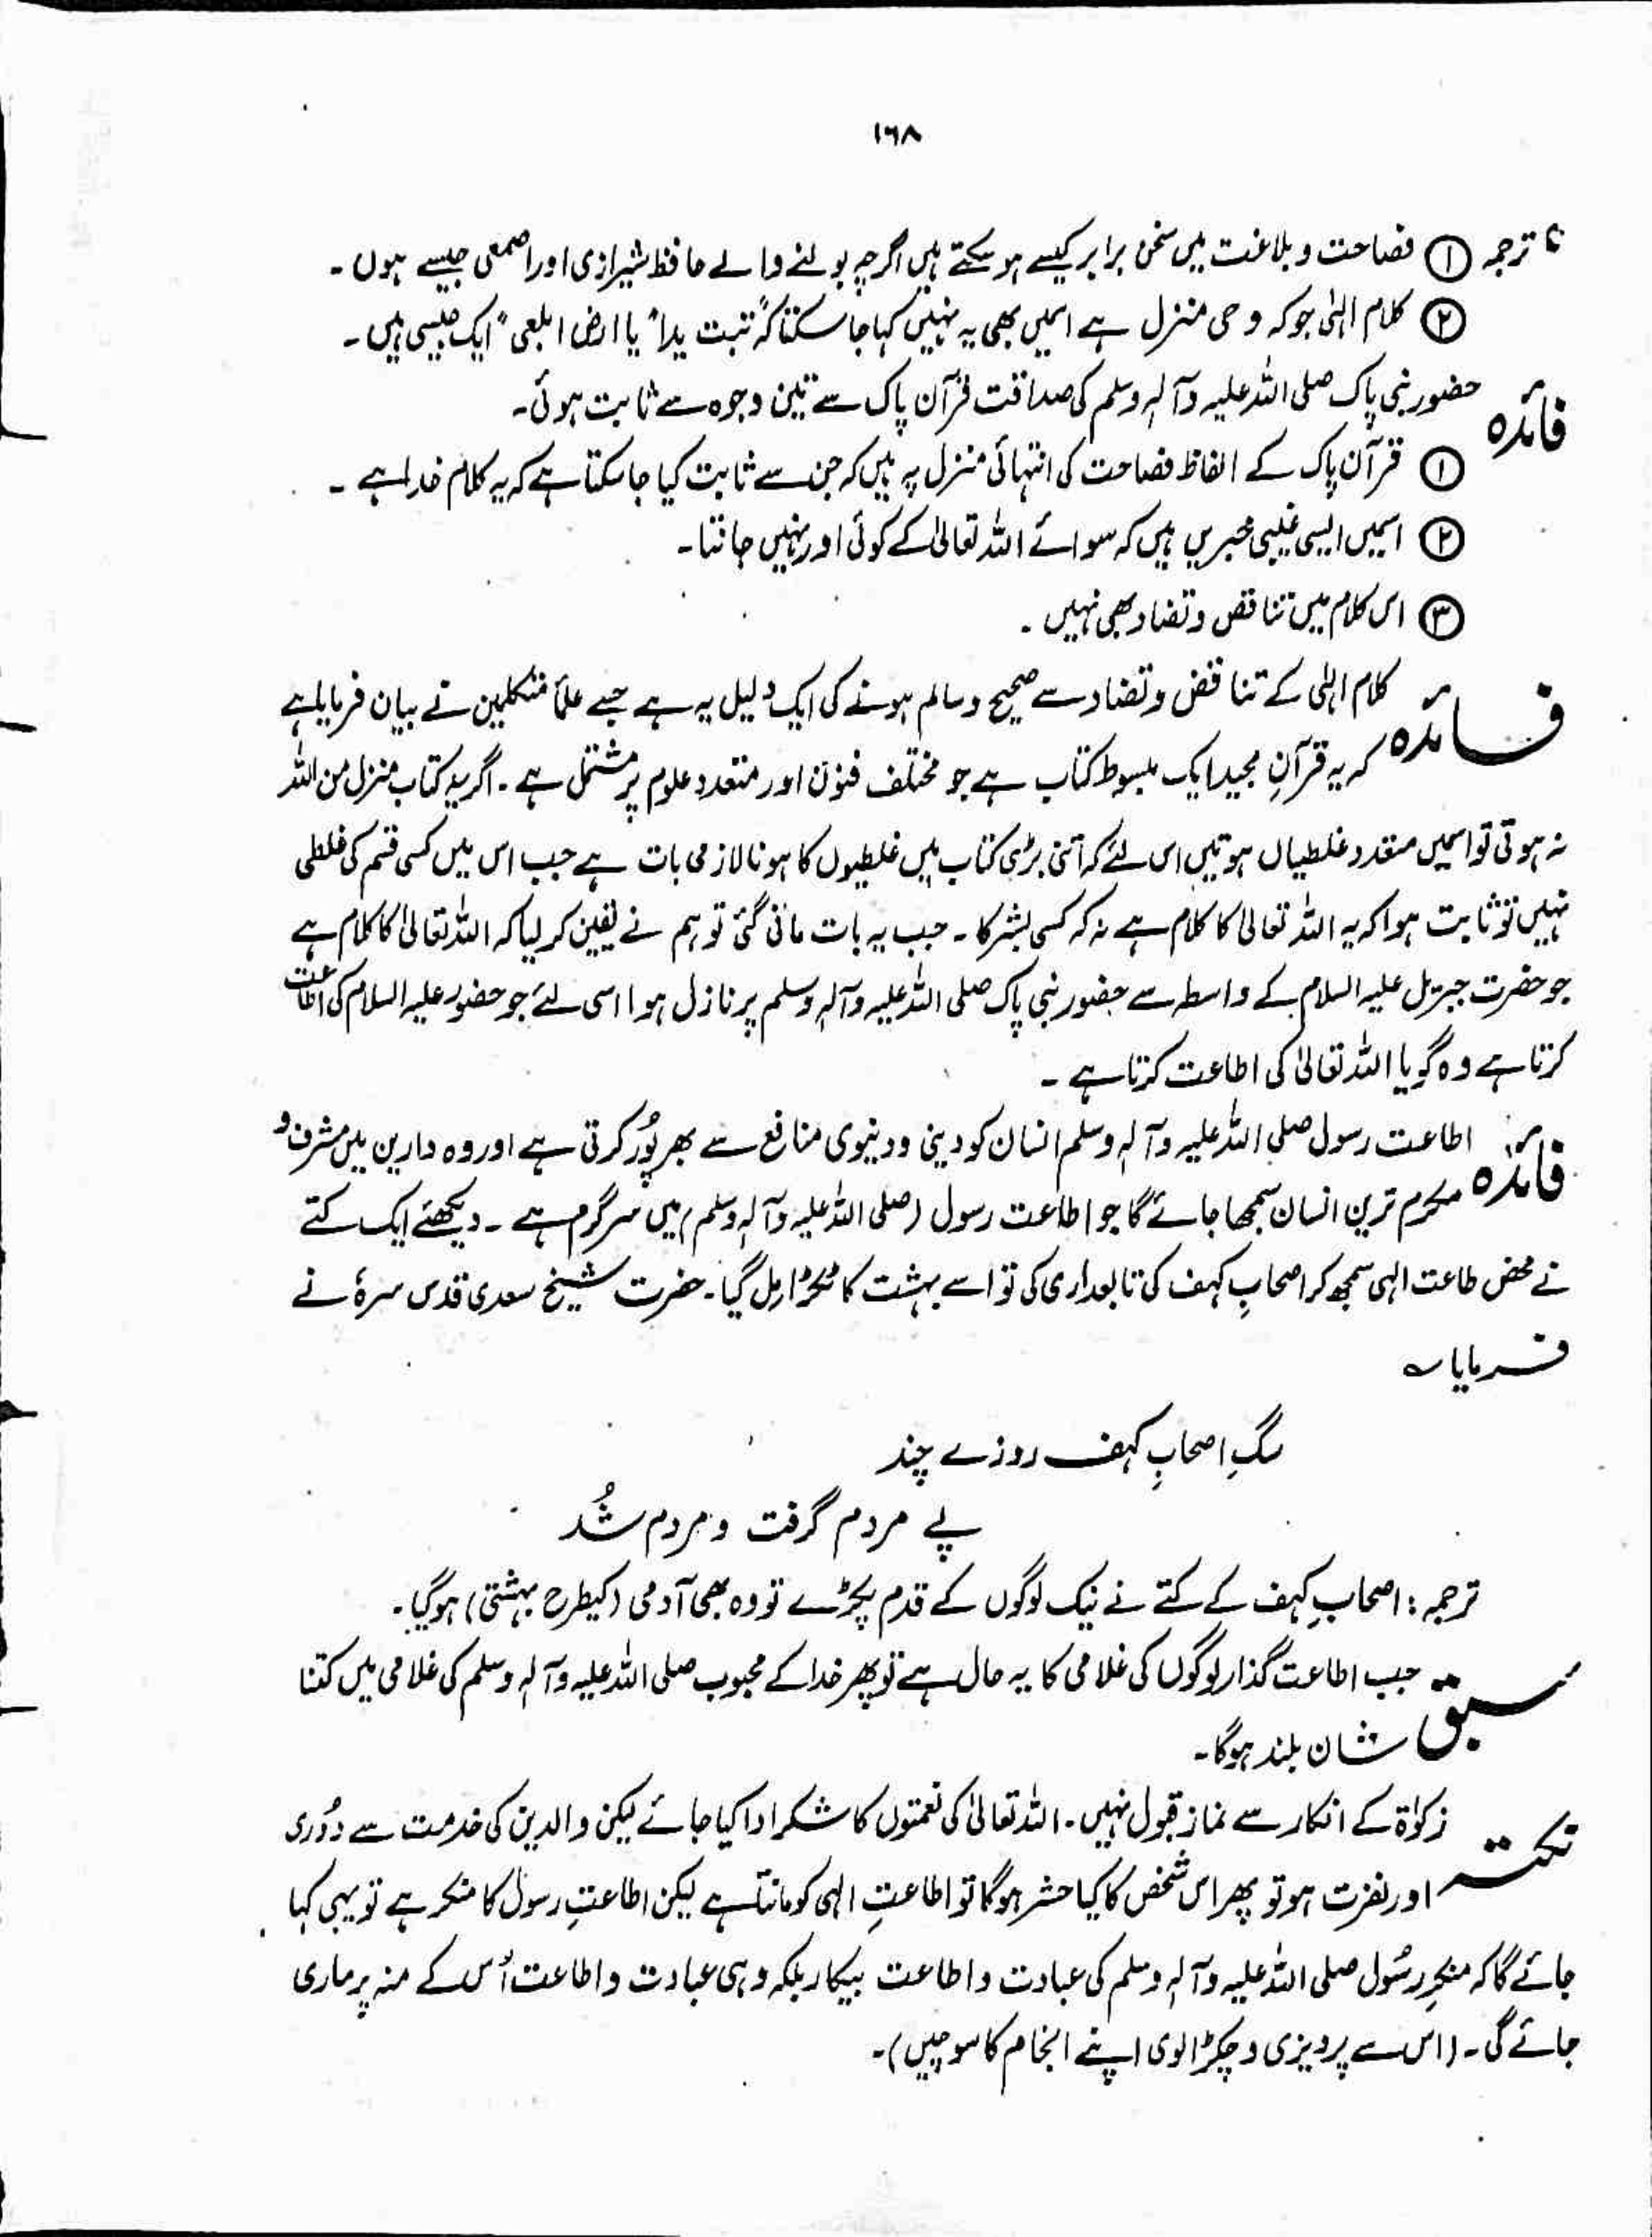 ۱۶۸
ترجمہ ① فصاحت و بلاغت میں سخن برابر کیسے ہو سکتے ہیں اگرچہ بولنے والے حافظ شیرازی اور اصمعی جیسے ہوں۔
② کلام الٰہی جو کہ وحی منزل ہے اسمیں بھی یہ نہیں کہا جا سکتا کہ "تبت یدا" یا ارض ابلعی" ایک جیسی ہیں۔
فائدہ حضور نبی پاک صلی اللہ علیہ وآلہٖ وسلم کی صداقت قرآن پاک سے تین وجوہ سے ثابت ہوئی۔
① قرآن پاک کے الفاظ فصاحت کی انتہائی منزل پہ ہیں کہ جن سے ثابت کیا جا سکتا ہے کہ یہ کلام خدا ہے۔
② اسمیں ایسی غیبی خبریں ہیں کہ سوائے اللہ تعالیٰ کے کوئی اور نہیں جانتا۔
③ اس کلام میں تناقض و تضاد بھی نہیں۔
فائدہ کلام الٰہی کے تناقض و تضاد سے صحیح و سالم ہونے کی ایک دلیل یہ ہے جسے علمأ متکلمین نے بیان فرمایا ہے
کہ یہ قرآنِ مجید ایک مبسوط کتاب ہے جو مختلف فنون اور متعدد علوم پر مشتمل ہے۔ اگر یہ کتاب منزل من اللہ
نہ ہوتی تو اسمیں متعدد غلطیاں ہوتیں اس لئے کہ اتنی بڑی کتاب میں غلطیوں کا ہونا لازمی بات ہے جب اس میں کسی قسم کی غلطی
نہیں تو ثابت ہوا کہ یہ اللہ تعالیٰ کا کلام ہے نہ کہ کسی بشر کا۔ جب یہ بات مانی گئی تو ہم نے یقین کر لیا کہ اللہ تعالیٰ کا کلام ہے
جو حضرت جبریل علیہ السلام کے واسطہ سے حضور نبی پاک صلی اللہ علیہ وآلہٖ وسلم پر نازل ہوا اسی لئے جو حضور علیہ السلام کی اطاعت
کرتا ہے وہ گویا اللہ تعالیٰ کی اطاعت کرتا ہے۔
فائدہ اطاعت رسول صلی اللہ علیہ وآلہٖ وسلم انسان کو دینی و دنیوی منافع سے بھرپُور کرتی ہے اور وہ دارین میں مشرف و
مکرم ترین انسان سمجھا جائے گا جو اطاعت رسول (صلی اللہ علیہ وآلہٖ وسلم) میں سرگرم ہے۔ دیکھئے ایک کتے
نے محض طاعت الٰہی سمجھ کر اصحابِ کہف کی تابعداری کی تو اسے بہشت کا ٹکڑا مل گیا۔ حضرت شیخ سعدی قدس سرہٗ نے
فرمایا ؎
سگِ اصحابِ کہف روزے چند
پے مردم گرفت و مردم شُد
ترجمہ: اصحابِ کہف کے کتے نے نیک لوگوں کے قدم پکڑے تو وہ بھی آدمی (کیطرح بہشتی) ہو گیا۔
سبق جب اطاعت گذار لوگوں کی غلامی کا یہ حال ہے تو پھر خدا کے محبوب صلی اللہ علیہ وآلہٖ وسلم کی غلامی میں کتنا
شان بلند ہوگا۔
نکتہ زکوٰۃ کے انکار سے نماز قبول نہیں۔ اللہ تعالیٰ کی نعمتوں کا شکر ادا کیا جائے لیکن والدین کی خدمت سے دُوری
اور نفرت ہو تو پھر اس شخص کا کیا حشر ہوگا تو اطاعتِ الٰہی کو مانتا ہے لیکن اطاعتِ رسول کا منکر ہے تو یہی کہا
جائے گا کہ منکرِ رسُول صلی اللہ علیہ وآلہٖ وسلم کی عبادت و اطاعت بیکار بلکہ وہی عبادت و اطاعت اُس کے منہ پر ماری
جائے گی۔ (اس سے پرویزی و چکڑالوی اپنے انجام کا سوچیں)۔